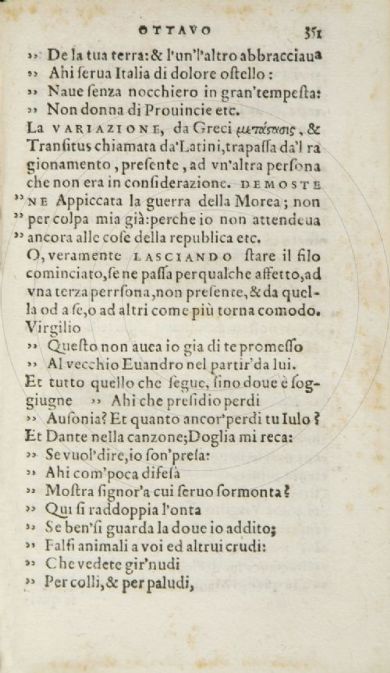 OTTAVO 351
” De la tua terra: & l'un'l'altro abbracciaua
” Ahi ſerua Italia di dolore oſtello :
” Naue ſenza nocchiero in gran'tempeſta:
” Non donna di Prouincie etc.
La VARIAZIONE, da Greci μετάστασις, &
Tranſitus chiamata da'Latini, trapaſſa da'l ra
gionamento, preſente, ad vn'altra perſona
che non era in conſiderazione. DEMOSTE
” NE Appiccata la guerra della Morea; non
” per colpa mia già: perche io non attendeua
” ancora alle coſe della republica etc.
O, veramente LASCIANDO ſtare il filo
cominciato, ſe ne paſſa per qualche affetto, ad
vna terza perrſona, non preſente, & da quel-
la od a ſe, o ad altri come più torna comodo.
Virgilio
” Queſto non auea io gia di te promeſſo
” Al vecchio Euandro nel partir'da lui.
Et tutto quello che ſegue, ſino doue è ſog-
giugne ” Ahi che preſidio perdi
” Auſonia? Et quanto ancor'perdi tu Iulo?
Et Dante nella canzone; Doglia mi reca:
” Se vuol'dire, io ſon'preſa:
” Ahi com'poca difeſà
” Moſtra ſignor'a cui ſeruo ſormonta?
” Qui ſi raddoppia l'onta
” Se ben'ſi guarda la doue io addito;
” Falſi animali a voi ed altrui crudi:
” Che vedete gir'nudi
” Per colli, & per paludi,